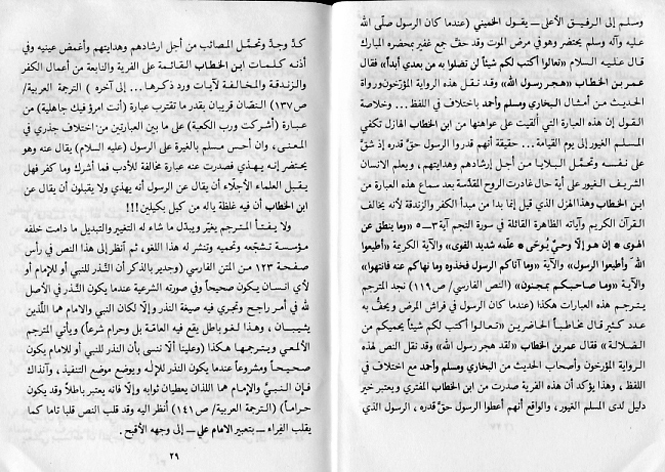 وسلم إلى الرفيق الأعلى_ يقول الخميني (عندما كان الرسول صلى الله
عليه وآله وسلم يحتضر وهو في مرض الموت وقد حفّ جمع غفير بمحضره المبارك
قال عليه السلام «تعالوا أكتب لكم شيئاً لن تضلوا به من بعدي أبداً» فقال
عمر بن الخطاب «هجر رسول الله» وقد نقل هذه الرواية المؤرخون ورواة
الحديث من أمثال البخاري ومسلم وأحمد باختلاف في اللفظ... وخلاصة
القول إن هذه العبارة التي ألقيت على عواهنها من ابن الخطاب الهازل تكفي
المسلم الغيور إلى يوم القيامة... حقيقة أنهم قدروا الرسول حقّ قدره إذ شقّ
على نفسه وتحمّل البلايا من أجل إرشادهم وهدايتهم، ويعلم الانسان
الشريف الغيور على أية حال غادرت الروح المقدّسة بعد سماع هذه العبارة من
ابن الخطاب وهذا الهزل الذي قيل إنما بدا من مبدأ الكفر والزندقة لأنه يخالف
القرآن الكريم وآياته الظاهرة القائلة في سورة النجم آية ٣_٥ «وما ينطق عن
الهوى * إن هو إلاّ وحيٌ يُوحَى * علّمه شديد القوى» والآية الكريمة «أطيعوا
الله وأطيعوا الرسول» والآية «وما آتاكم الرسول فخذوه وما نهاكم عنه فانتهوا»
والآية «وما صاحبكم بمجنون» (النص الفارسي/ ص ١١٩) نجد المترجم
يترجم هذه العبارات هكذا (عندما كان الرسول في فراش المرض ويحفّ به
عدد كثير قال مخاطباً الحاضرين «تعالوا أكتب لكم شيئاً يحميكم من
الضلالة» فقال عمر بن الخطاب «لقد هجر رسول الله» وقد نقل النص لهذه
الرواية المؤرخون وأصحاب الحديث من البخاري ومسلم وأحمد مع اختلاف في
اللفظ، وهذا يؤكد أن هذه الفرية صدرت من ابن الخطاب المفتري ويعتبر خير
دليل لدى المسلم الغيور، والواقع أنهم أعطوا الرسول حقّ قدره، الرسول الذي
كدّ وجدّ وتحمّل المصائب من أجل ارشادهم وهدايتهم وأغمض عينيه وفي
أذنه كلمات ابن الخطاب القائمة على الفرية والنابعة من أعمال الكفر
والزندقة والمخالفة لآيات ورد ذكرها... إلى آخره) الترجمة العربية/
ص ١٣٧) النصّان قريبان بقدر ما تقترب عبارة (أنت امرؤ فيك جاهلية) من
عبارة (أشركت ورب الكعبة) على ما بين العبارتين من اختلاف جذري في
المعنى، وإن أحس مسلم بالغيرة على الرسول (عليه السلام) يقال عنه وهو
يحتضر إنه يهذي فصدرت عنه عبارة مخالفة للأدب فما أشرك وما كفر فهل
يقبل العلماء الأجلاّء أن يقال عن الرسول أنه يهذي ولا يقبلون أن يقال عن
ابن الخطاب أن فيه غلظة باله من كيل بكيلين!!!
ولا يفتأ المترجم يغيّر ويبدّل ما شاء له التغيير والتبديل ما دامت خلفه
مؤسسة تشجّعه وتحميه وتنشر له هذا اللغو، ثم أنظر إلى هذا النص في رأس
صفحة ١٢٣ من المتن الفارسي (وجدير بالذكر أن النّذر للنبي أو للإمام أو
لأي انسان يكون صحيحاً وفي صورته الشرعية عندما يكون النّذر في الأصل
لله في أمر راجح وتجري فيه صيغة النذر وإلّا لكان النبي والامام هما اللّذين
يثيبان، وهذا لغو باطل يقع فيه العامّة بل وحرام شرعاً) ويأتي المترجم
الألمعي ويترجمها هكذا (وعلينا ألاّ ننسى بأن النّذر للنبي أو للإمام يكون
صحيحاً ومشروعاً عندما يكون النذر للإله ويوضع موضع التنفيذ، وآنذاك
فإن النبيّ والإمام هما اللذان يعطيان ثوابه وإلاّ فانه يعتبر باطلاً وقد يكون
حراماً) (الترجمة العربية/ ص ١٤١) انظر اليه وقد قلب النص قلبا تاما كما
يقلب الفِراء_ بتعبير الامام علي_ إلى وجهه الأقبح.
٢٩